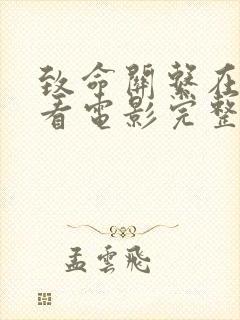 致命關系在
看電影完整
孟雲飛